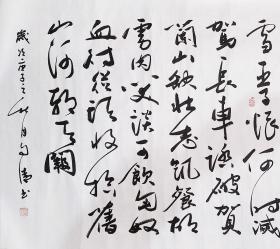 雪臣子恨何時滅
駕長車踏破賀
蘭山缺壯志飢餐胡
虜肉笑談渴飲匈奴
血待從頭收拾舊
山河朝天闕
歲次庚子之秋月書